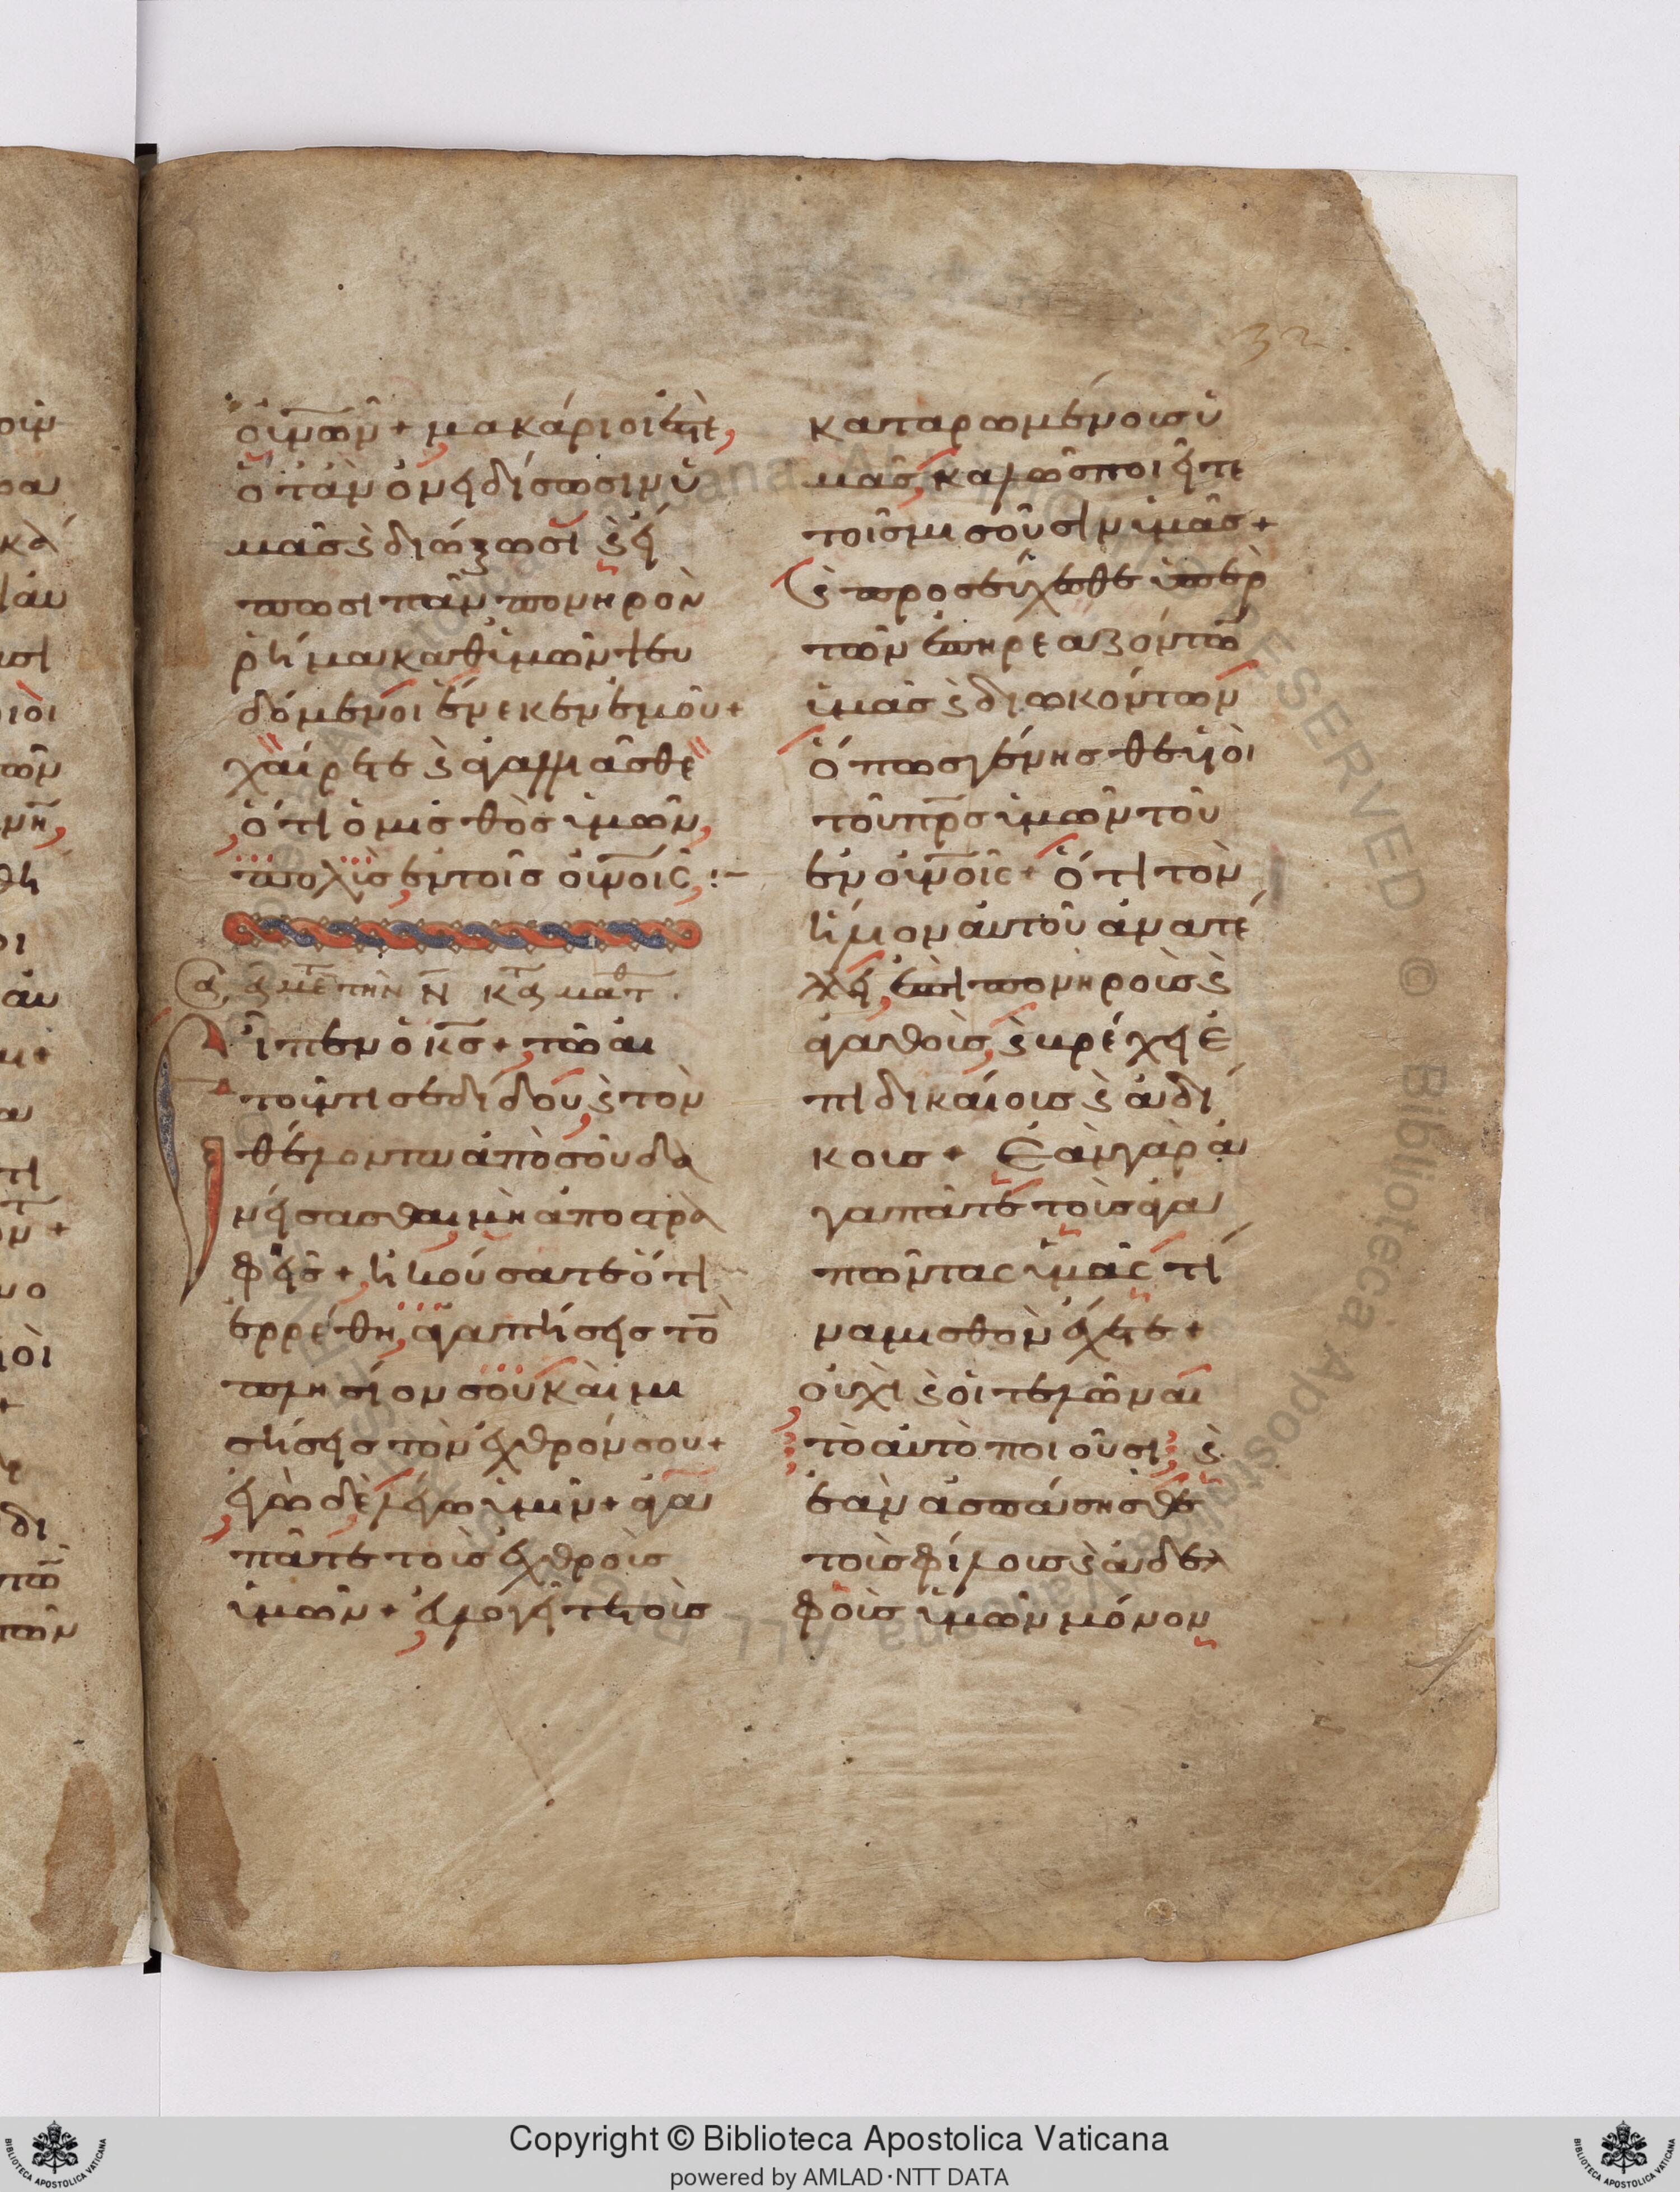 32
οὐν̅ω̅ν̑ + μακάριοί ἐστὲ,
ὅταν ὀνηδίσωσιν ὑ
μᾶς ϗ διώξωσι ϗ εἴ
πωσι πᾶν πονηρὸν
ρῆμα καθ ὑμῶν ψευ
δόμενοι ἕνεκεν ἐμοῦ +
χαίρετε ϗ ἀγαλλιᾶσθε
ὅτι ὁ μισθὸς ὑμῶν,
πολὺς ἐν τοῖς οὐν̅οις :–
Εἶπεν ὁ κ̅ς̅ + τῶ αι
τοῦντι σε δίδου, ϗ τὸν
θέλοντα ἀπὸ σοῦ δα
νείσασθαι μὴ ἀποστρα
φεῖς + ἠκούσατε ὅτι
ἐρρέθη, ἀγαπήσεις τὸ̅
πλησίον σου καὶ μι
σήσεις τὸν ἐχθρόν σου +
ἐγὼ δὲ λέγω ὑμῖν + ἀγα
πᾶτε τοὺς ἐχθροὺς
ὑμῶν + εὐλογεῖτε τοὺς
καταρωμένους ὑ
μᾶς, καλῶς ποιεῖτε
τοῖς μισοῦσιν ὑμᾶς +
ϗ προσεύχεσθε ὑπὲρ
τῶν ἐπηρεαζόντω̅
ὑμᾶς ϗ διωκόντων
ὅπως γένησθε υἱοὶ
τοῦ π̅ρ̅ς ὑμῶν τοῦ
ἐν οὐν̅οῖς + ὅτι τὸν
ἥλιον αὐτοῦ ἀνατέ
λλει, ἐπὶ πονηροὺς ϗ
ἀγαθοὺς, ϗ βρέχει ἐ
πὶ δικαίους ϗ ἀδί
κους + Ἐὰν γὰρ ἀ
γαπᾶτε τοὺς ἀγα
πῶντας ὑμᾶς τί
να μισθὸν ἔχετε +
οὐχὶ ϗ οἱ τελῶναι
τὸ αὐτὸ ποιοῦσι; ϗ
ἐὰν ἀσπάσησθε
τοὺς φίλους ϗ ἀδελ
φοὺς ὑμῶν μόνον
Copyright © Biblioteca Apostolica Vaticana
powered by AMLAD·NTT DATA